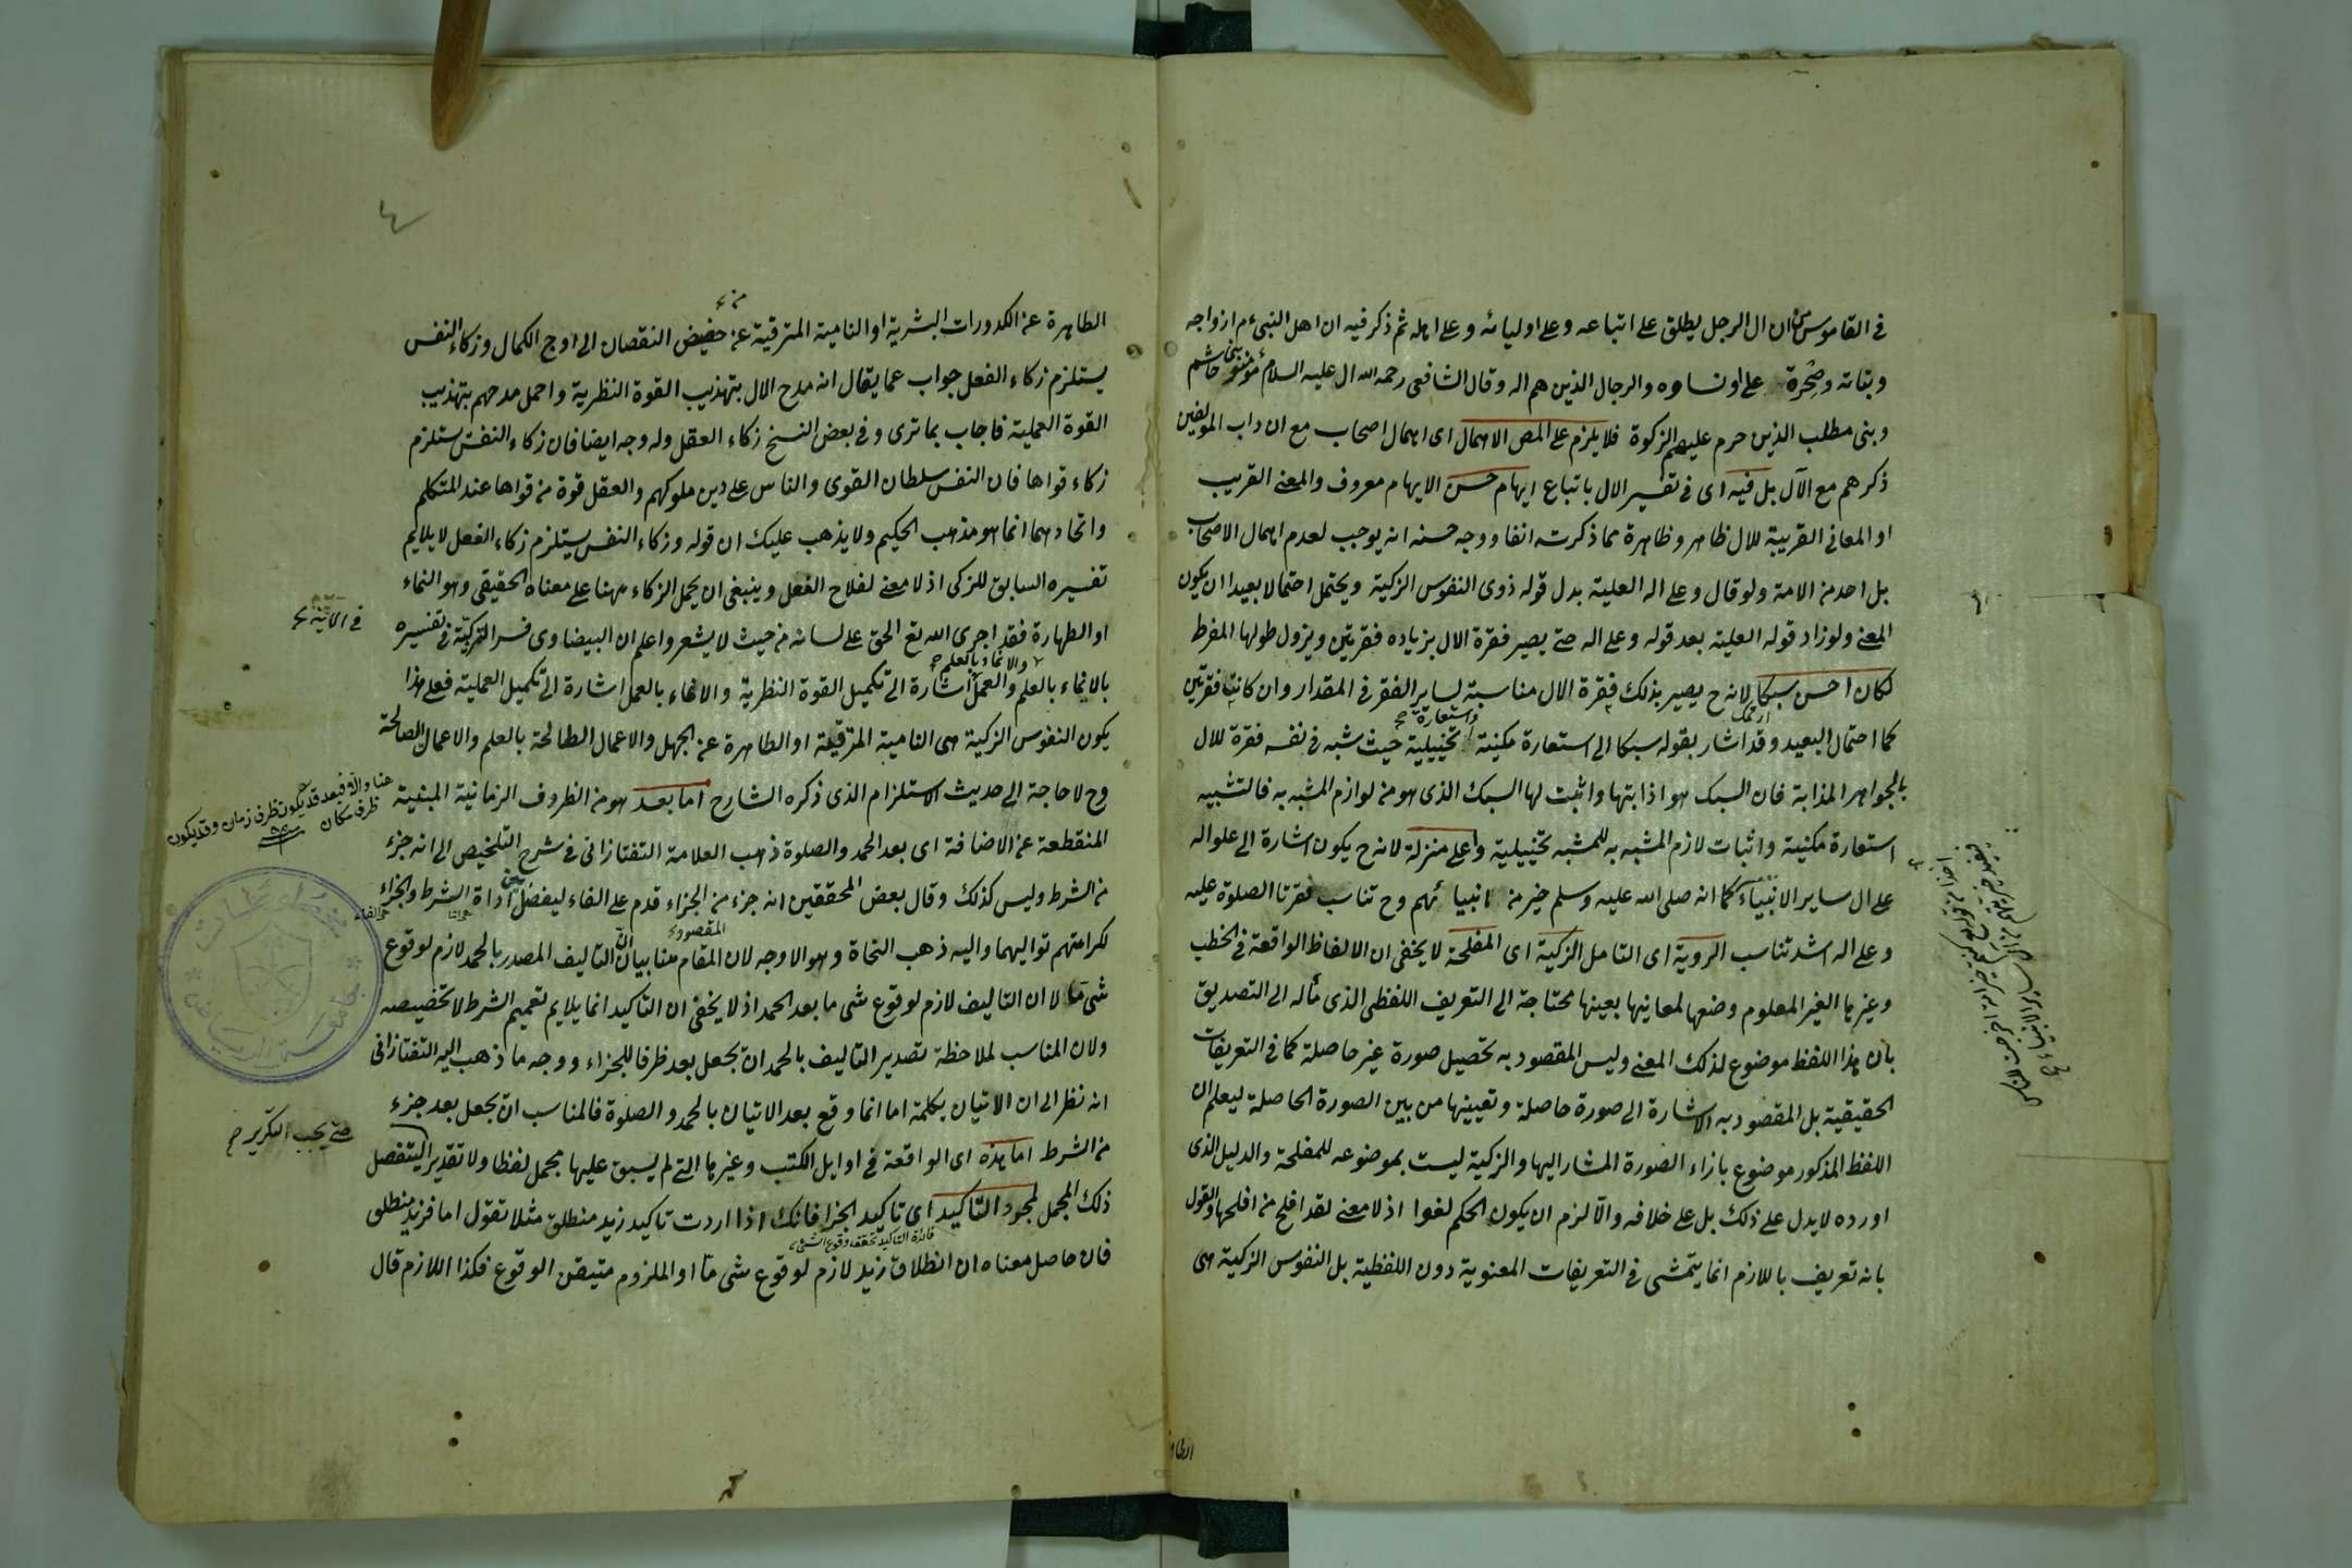 في القاموس ان ال الرجل يطلق على اتباعه وعلى اوليائه وعلى اهله ثم ذكر فيه ان اهل النبي م ازواجه
وبناته وصهره على او نساوه والرجال الذين هم اله وقال الشافعى رحمه الله ال عليه السلام مؤمنو بنى هاشم
وبنى مطلب الذين حرم عليهم الزكوة فلا يلزم على المص الاهمال اى اهمال اصحاب مع ان داب المولفين
ذكرهم مع الآل بل فيه اى فى تفسير الال باتباع ايهام حسن الايهام معروف والمعنى القريب
او المعانى القريبة للال ظاهر وظاهرة مما ذكرته انفا ووجه حسنه انه يوجب لعدم اهمال الاصحاب
بل احد من الامة ولو قال وعلى اله العلية بدل قوله ذوى النفوس الزكية ويحتمل احتمالا بعيدا ان يكون
المعنى ولو زاد قوله العلية بعد قوله وعلى اله حتى يصير فقرة الال بزياده فقرتين ويزول طولها المفرط
لكان احسن سبكا لانه ح يصير بذلك فقرة الال مناسبة لساير الفقر فى المقدار وان كانت فقرتين
كما احتمال البعيد وقد اشار بقوله سبكا الى استعارة مكنية واستعارة تخييلية حيث شبه فى نفسه فقرة للال
بالجواهر المذابة فان السبك هو اذابتها واثبت لها السبك الذى هو من لوازم المشبه به فالتشبيه
استعارة مكنية واثبات لازم المشبه به للمشبه تخييلية واعلى منزلة لانه ح يكون اشارة الى علو اله
على ال ساير الانبياء كما انه صلى الله عليه وسلم خير من انبيائهم وح تناسب فقرتا الصلوة عليه
وعلى اله اشد تناسب الروية اى التامل الزكية اى المفلحة لا يخفى ان الالفاظ الواقعة فى الخطب
وغيرها الغير المعلوم وضعها لمعانيها بعينها محتاجة الى التعريف اللفظى الذى مأله الى التصديق
بان هذا اللفظ موضوع لذلك المعنى وليس المقصود به تحصيل صورة غير حاصلة كما فى التعريفات
الحقيقية بل المقصود به الاشارة الى صورة حاصلة وتعيينها من بين الصورة الحاصلة ليعلم ان
اللفظ المذكور موضوع بازاء الصورة المشار اليها والزكية ليست بموضوعه للمفلحة والدليل الذى
اورده لا يدل على ذلك بل على خلافه والا لزم ان يكون الحكم لغوا اذ لا معنى لقد افلح من افلحها والقول
بانه تعريف باللازم انما يتمشى فى التعريفات المعنوية دون اللفظية بل النفوس الزكية هى
٤
الطاهرة عن الكدورات البشرية او النامية المترقية عن حضيض النقصان الى اوج الكمال وزكاء النفس
يستلزم زكاء الفعل جواب عما يقال انه مدح الال بتهذيب القوة النظرية واحمل مدحهم بتهذيب
القوة العملية فاجاب بما ترى وفى بعض النسخ زكاء العقل وله وجه ايضا فان زكاء النفس يستلزم
زكاء قواها فان النفس سلطان القوى والناس على دين ملوكهم والعقل قوة من قواها عند المتكلم
واتحادهما انما هو مذهب الحكيم ولا يذهب عليك ان قوله وزكاء النفس يستلزم زكاء الفعل لا يلايم
تفسيره السابق للزكى اذ لا معنى لفلاح الفعل وينبغى ان يحمل الزكاء ههنا على معناه الحقيقى وهو النماء
او الطهارة فقد اجرى الله تع الحق على لسانه من حيث لا يشعر واعلم ان البيضاوى فسر التزكية فى تفسيره
بالانماء بالعلم والعمل اشارة الى تكميل القوة النظرية والانماء بالعمل اشارة الى تكميل العملية فعلى هذا
يكون النفوس الزكية هى النامية المترقيلة او الطاهرة عن الجهل والاعمال الطالحة بالعلم والاعمال الصالحة
وح لا حاجة الى حديث الاستلزام الذى ذكره الشارح اما بعد هو من الظروف الزمانية المبنية
المنقطعة عن الاضافة اى بعد الحمد والصلوة ذهب العلامة التفتازانى فى شرح التلخيص الى انه جزء
من الشرط وليس كذلك وقال بعض المحققين انه جزء من الجزاء قدم على الفاء ليفصل بين اداة الشرط والجزاء
لكراهتهم تواليهما واليه ذهب النحاة وهو الاوجه لان المقام هنا بيان ان التاليف المصدر بالحمد لازم لوقوع
شى ما لا ان التاليف لازم لوقوع شى ما بعد الحمد اذ لا يخفى ان التاكيد انما يلايم تعميم الشرط لا تخصيصه
ولان المناسب لملاحظة تصدير التاليف بالحمد ان يجعل بعد ظرفا للجزاء ووجه ما ذهب اليه التفتازانى
انه نظر الى ان الاتيان بكلمة اما انما وقع بعد الاتيان بالحمد والصلوة فالمناسب ان يجعل بعد جزء
من الشرط اما هذه اى الواقعة فى اوايل الكتب وغيرها التى لم يسبق عليها مجمل لفظا ولا تقدير التفصل
ذلك المجمل لمجرد التاكيد اى تاكيد الجزا فانك اذا اردت تاكيد زيد منطلق مثلا تقول اما فزيد منطلق
فان حاصل معناه ان انطلاق زيد لازم لوقوع شى ما او الملزوم متيقن الوقوع فكذا اللازم قال